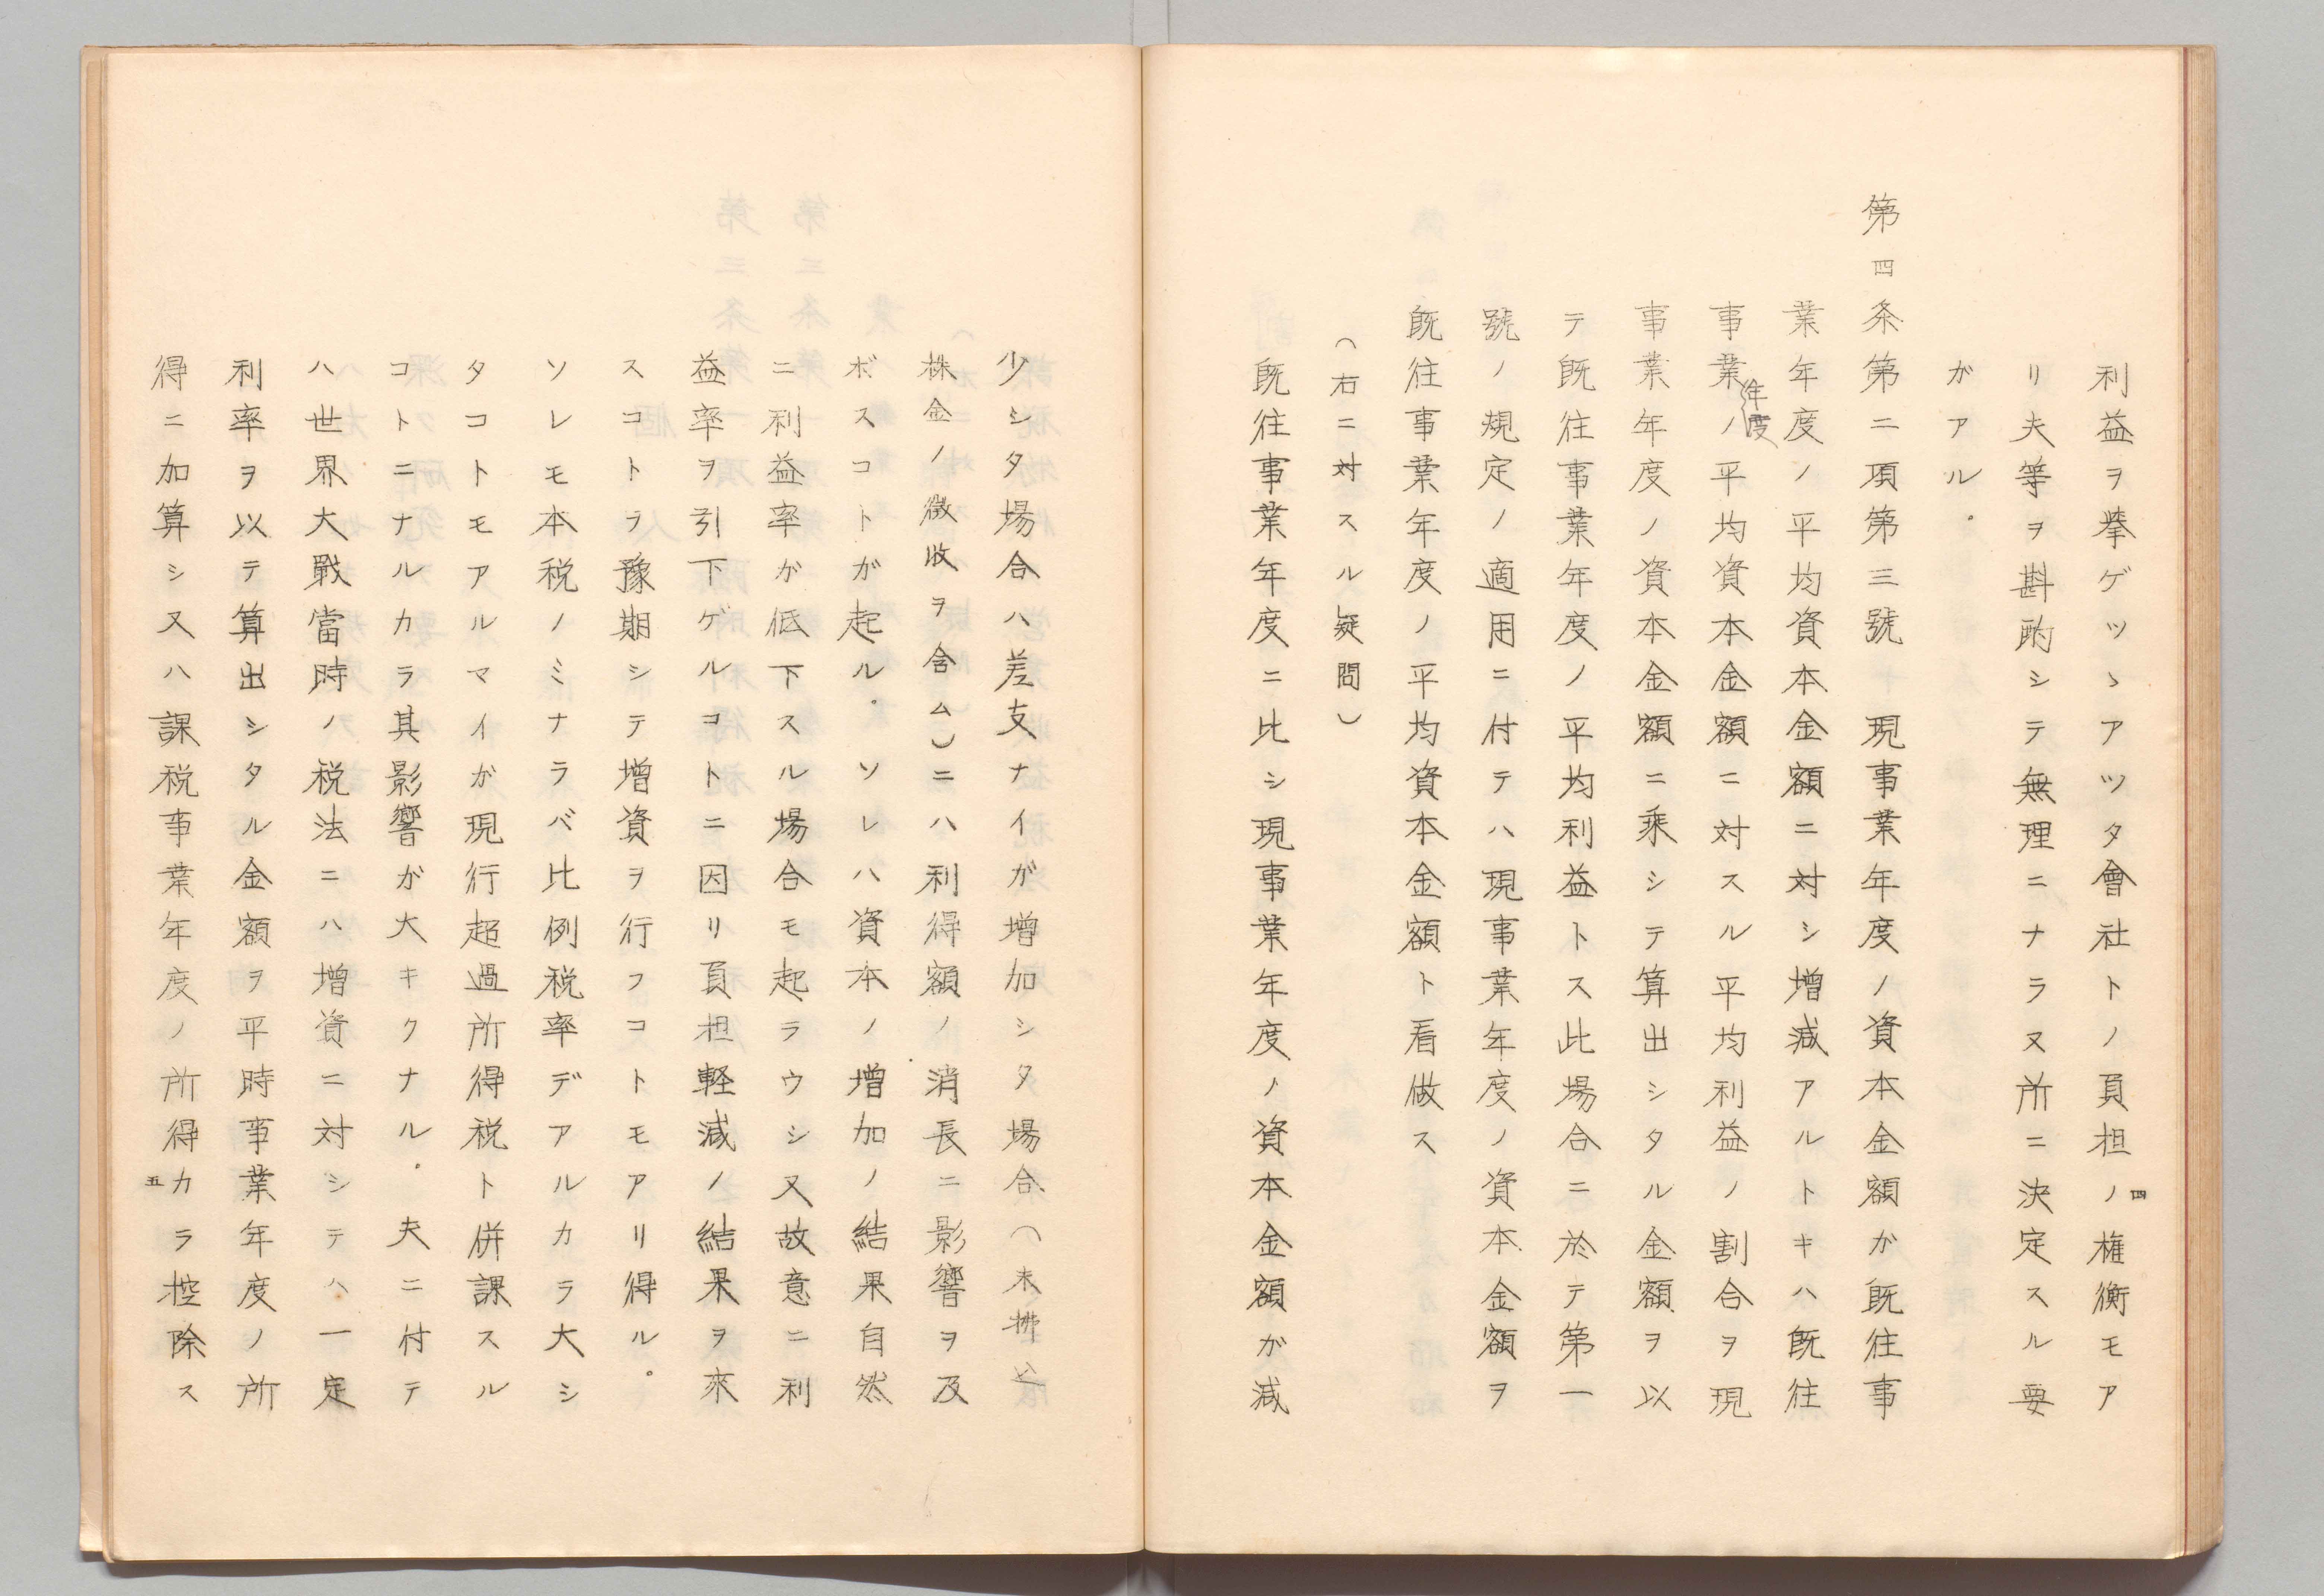 利益ヲ挙ゲツヽアツタ會社トノ負担ノ権衡モア
リ夫等ヲ斟酌シテ無理ニナラヌ所ニ決定スル要
ガアル。
第四条第二項第三號 現事業年度ノ資本金額ガ既往事
業年度ノ平均資本金額ニ対シ增減アルトキハ既往
事業年度ノ平均資本金額ニ対スル平均利益ノ割合ヲ現
事業年度ノ資本金額ニ乘シテ算出シタル金額ヲ以
テ既往事業年度ノ平均利益トス此場合ニ於テ第一
號ノ規定ノ適用ニ付テハ現事業年度ノ資本金額ヲ
既往事業年度ノ平均資本金額ト看做ス
(右ニ対スル疑問)
既往事業年度ニ比シ現事業年度ノ資本金額ガ減
四
少シタ場合ハ差支ナイガ增加シタ場合(未拂込
株金ノ徴收ヲ含ム)ニハ利得額ノ消長ニ影響ヲ及
ボスコトガ起ル。ソレハ資本ノ增加ノ結果自然
ニ利益率ガ低下スル場合モ起ラウシ又故意ニ利
益率ヲ引下ゲルコトニ因リ負担軽減ノ結果ヲ來
スコトヲ豫期シテ增資ヲ行フコトモアリ得ル。
ソレモ本税ノミナラバ比例税率デアルカラ大シ
タコトモアルマイガ現行超過所得税ト併課スル
コトニナルカラ其影響ガ大キクナル。夫ニ付テ
ハ世界大戰當時ノ税法ニハ增資ニ対シテハ一定
利率ヲ以テ算出シタル金額ヲ平時事業年度ノ所
得ニ加算シ又ハ課税事業年度ノ所得カラ控除ス
五